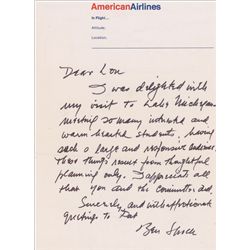 AmericanAirlines
In Flight...
Altitude:
Location:
Dear Lou
I was delighted with
my visit to Lake Michigan
meeting so many interested and
warm hearted students. Having
such a large and responsive audience.
These things result from thoughtful
planning only. I appreciate all
that you and the committee did.
Sincerely and with affectionate
greetings to Pat
Ben